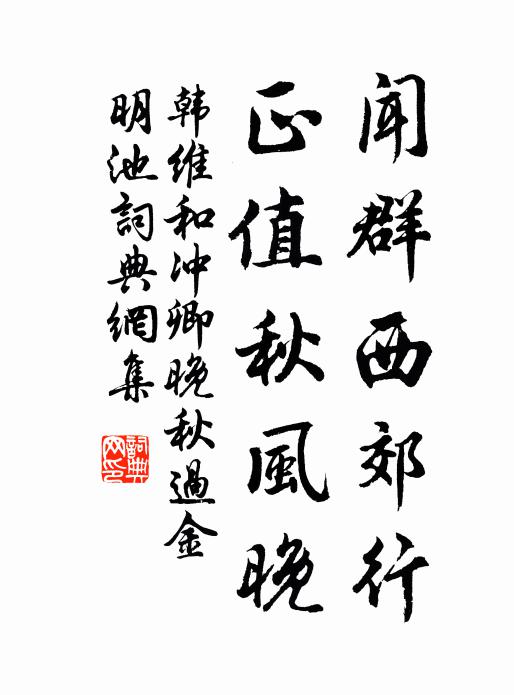 闻群西郊行
正值秋風晚
韩维和冲卿晚秋過金
明池詞典網集
詞典网印